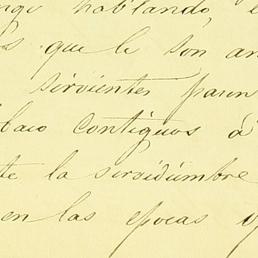 hablando,
que le son an
sirvientes
contiguos á
te la servidumbre
en las epocas